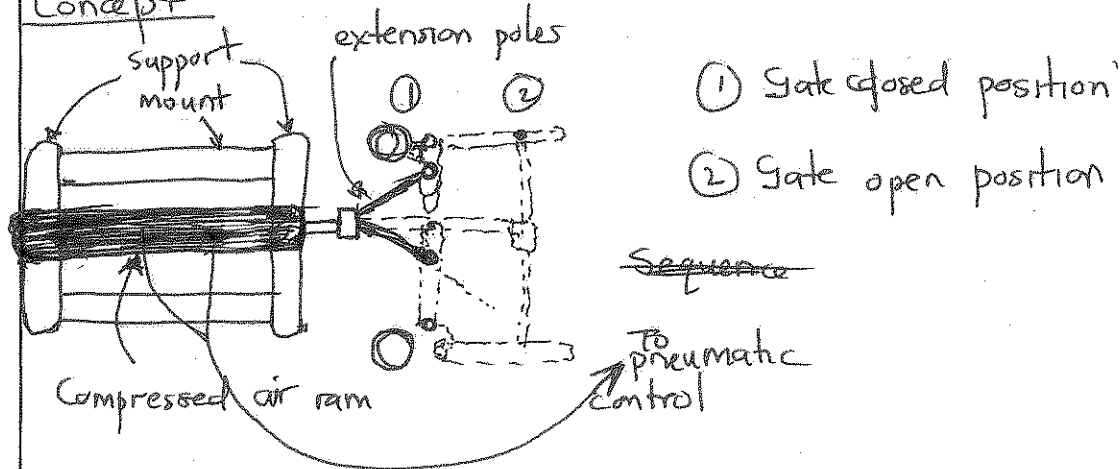 Concept
support
mount
extension poles
① ②
① Gate closed position
② Gate open position
Sequence
To
pneumatic
control
Compressed air ram